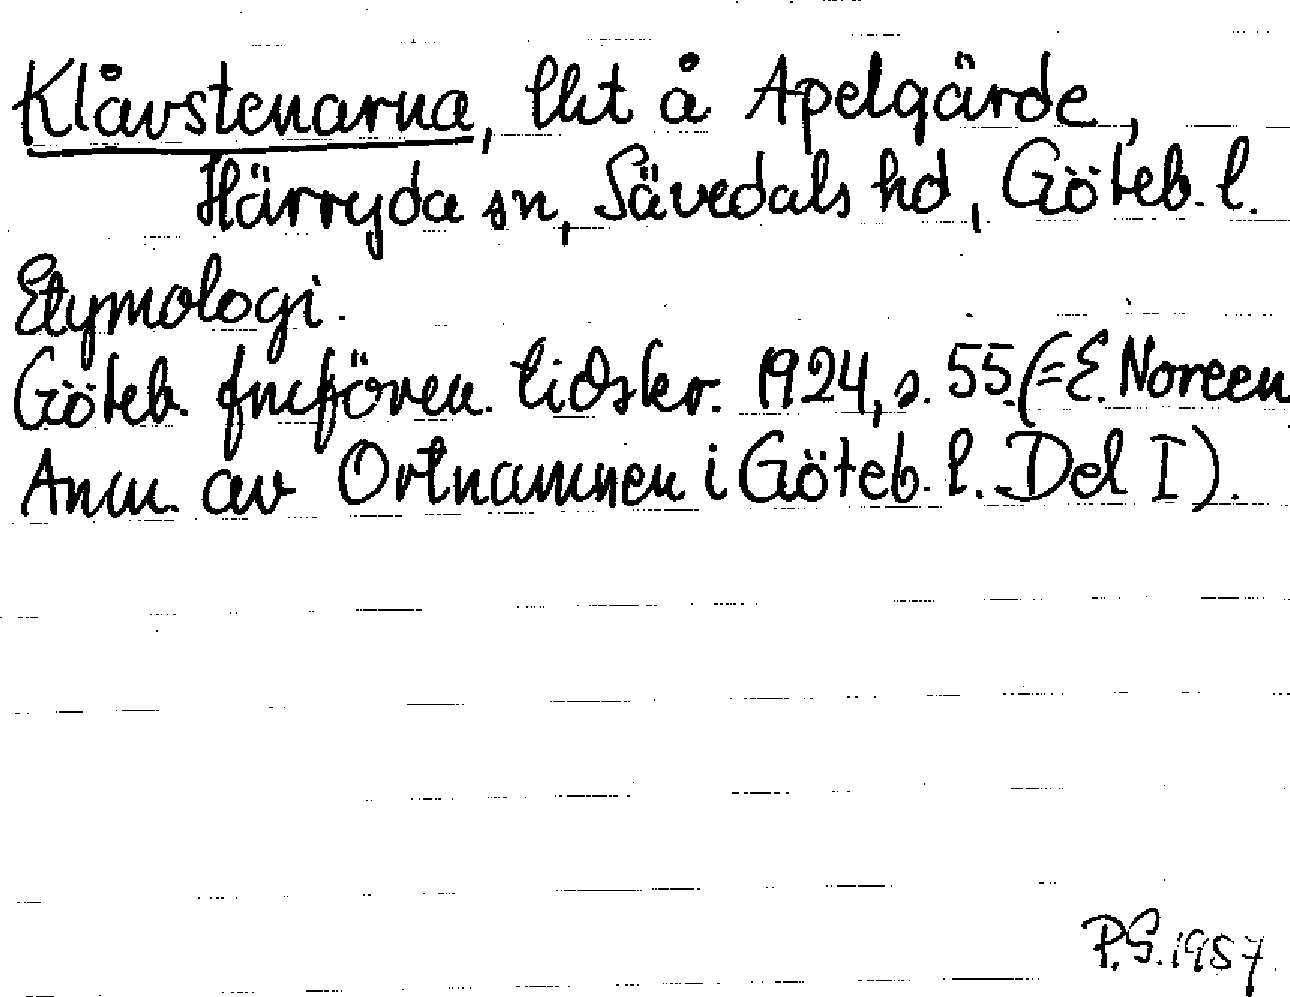 Klåvstenarna, lht å Apelgärde,
Härryda sn, Sävedals hd, Göteb. l.
Etymologi.
Göteb. fmfören. tidskr. 1924, s. 55 (= E. Noreen
Anm. av Ortnamnen i Göteb. l. Del I).
P.S. 1957.